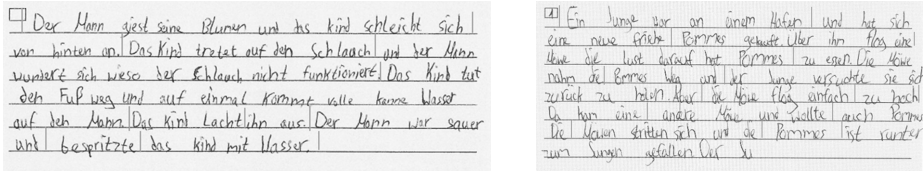 Der Mann giest seine Blumen und das kind schleicht sich
von hinten an. Das Kind tretet auf den Schlauch und der Mann
wundert sich wieso der Schlauch nicht funktioniert. Das Kind tut
den Fuß weg und auf einmal kommt volle kanne Wasser
auf den Mann. Das Kind Lacht ihn aus. Der Mann war sauer
und bespritzte das kind mit Wasser.
Ein Junge war an einem Hafen und hat sich
eine neue frische Pommes gekauft. Über ihn flog eine
Möwe die Lust darauf hat Pommes zu essen. Die Möwe
nahm die Pommes weg und der Junge versuchte sie sich
zurück zu holen. Aber die Möwe flog einfach zu hoch.
Da kam eine andere Möwe und wollte auch Pommes
Die Möwen stritten sich und die Pommes ist runter
zum Jungen gefallen Der Ju